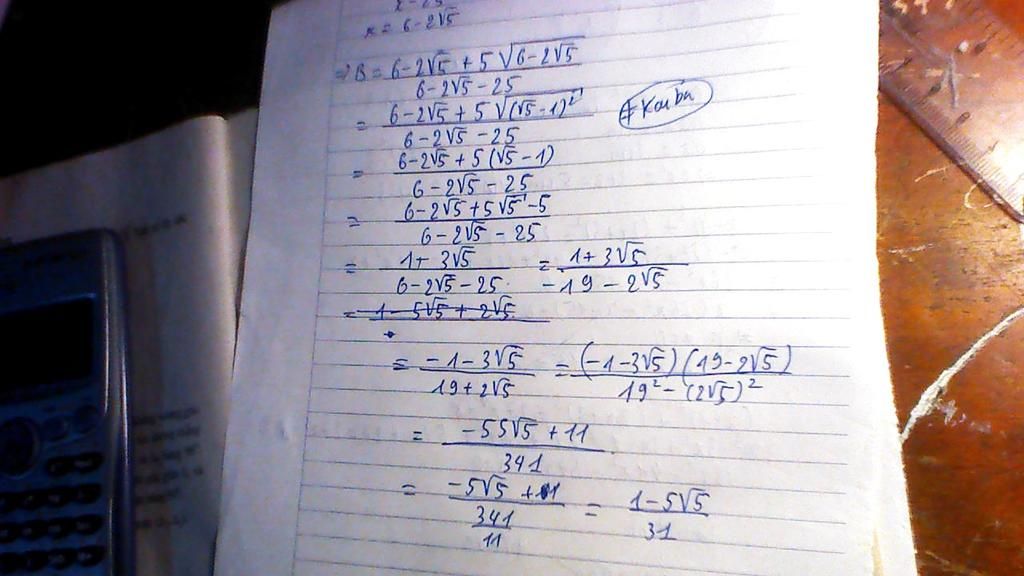 x = 6-2√5
=> B = (6-2√5 + 5√(6-2√5))/(6-2√5 - 25)
= (6-2√5 + 5√((√5-1)²))/(6-2√5 - 25)
= (6-2√5 + 5(√5-1))/(6-2√5 - 25)
= (6-2√5 + 5√5 - 5)/(6-2√5 - 25)
= (1+3√5)/(6-2√5-25) = (1+3√5)/(-19-2√5)
= (-1-3√5)/(19+2√5) = ((-1-3√5)(19-2√5))/(19²-(2√5)²)
= (-55√5 + 11)/341
= (-5√5 + 1)/(341/11) = (1-5√5)/31